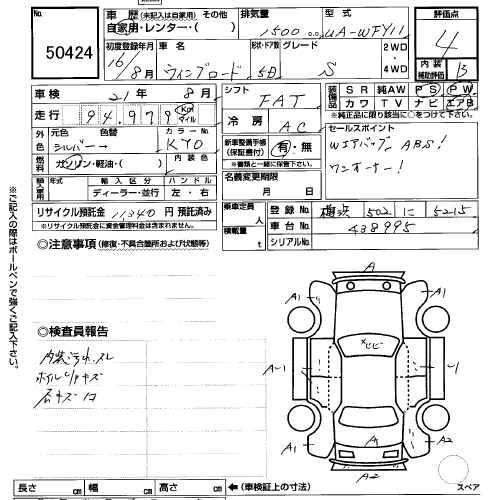 No.
50424
車歴 (未記入は自家用) その他
自家用・レンター・( )
排気量
1500 cc
型式
UA-WFY11
評価点
4
初度登録年月
16/8月
車名
ウィングロード
形状・ドア数
5D
グレード
S
2WD
・
4WD
内装
補助評価
B
車検 21年 8月
走行 94,979 Km マイル
シフト
FAT
装備品 SR 純AW PS PW
カワ TV ナビ エアB
※純正品に限り該当に○をつけて下さい
外色 元色 色替
シルバー→
カラーNo.
KY0
内装色
冷房
AC
セールスポイント
WエアバッグABS!
ワンオーナー!
燃料 ガソリン・軽油・( )
新車整備手帳
(保証書付)
有・無
※書類と一緒に保管して下さい。
輸入車用 年式 輸入区分 ハンドル
ディーラー・並行 左・右
名義変更期限
月 日
リサイクル預託金 11340円 預託済み
※リサイクル預託金に資金管理料金は含まれません。
乗車定員 人
積載量 t
登録No. 横浜 502 に 5215
車台No. 438995
シリアルNo.
◎注意事項 (修復・不具合箇所および状態等)
※ご記入の際はボールペンで強くご記入下さい。
◎検査員報告
内装汚れ.スレ
ホイルCAキズ
石キズ
A
A1
A1
A-1
A1
A1
A2
A2
長さ cm 幅 cm 高さ cm ←(車検証上の寸法)
スペア